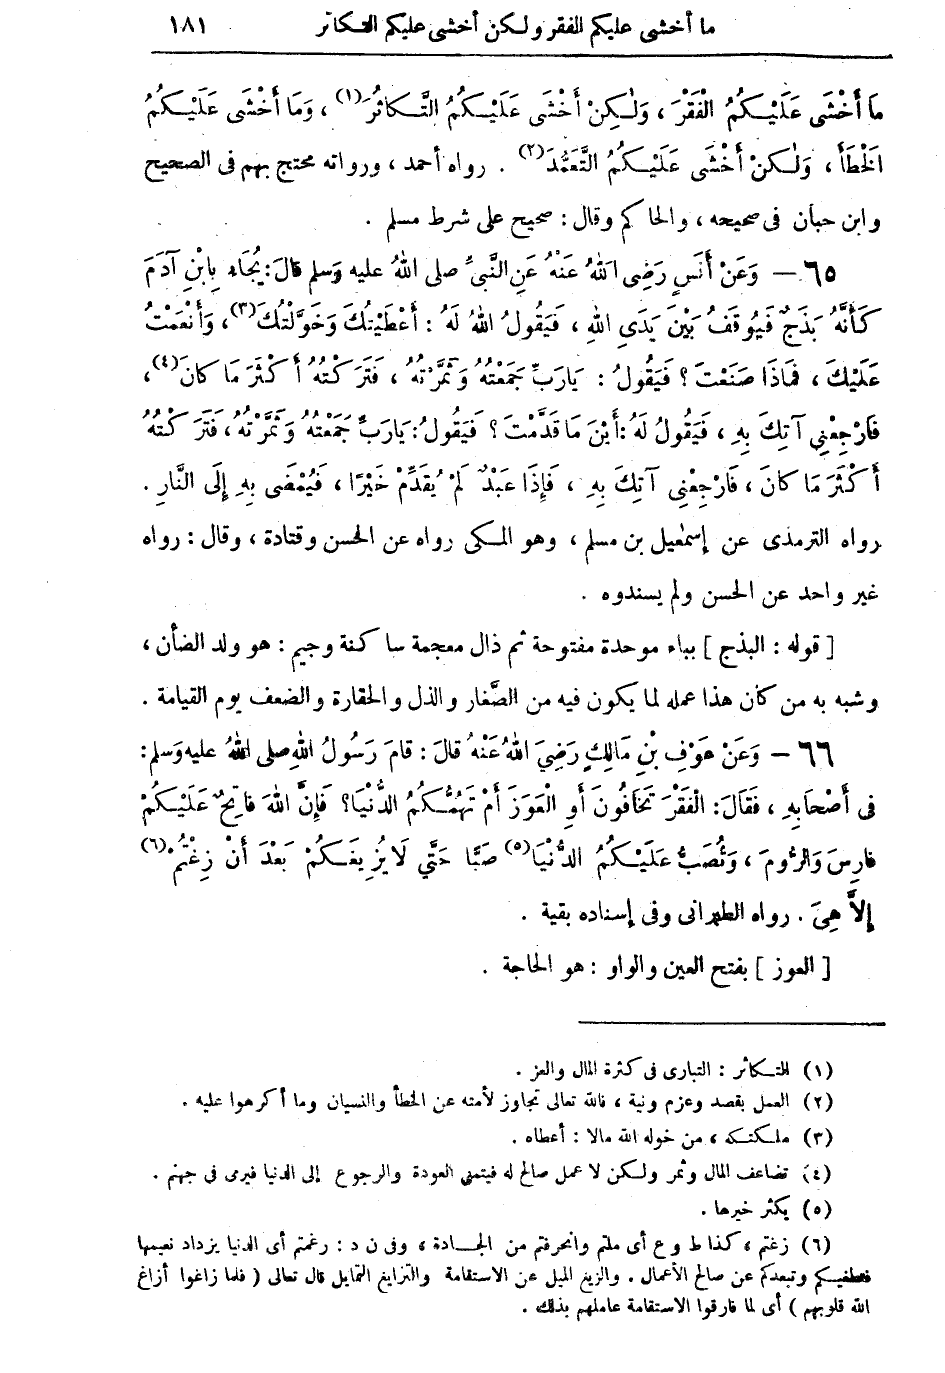 ما أخشى عليكم الفقر ولكن أخشى عليكم التكاثر ١٨١
مَا أَخْشَى عَلَيْكُمُ الْفَقْرَ ، وَلٰكِنْ أَخْشَى عَلَيْكُمُ التَّكَاثُرَ(١) ، وَمَا أَخْشَى عَلَيْكُمُ
الْخَطَأَ ، وَلٰكِنْ أَخْشَى عَلَيْكُمُ التَّعَمُّدَ(٢) . رواه أحمد ، ورواته محتج بهم فى الصحيح
وابن حبان فى صحيحه ، والحاكم وقال : صحيح على شرط مسلم .
٦٥ — وَعَنْ أَنَسٍ رَضِىَ اللهُ عَنْهُ عَنِ النَّبِىِّ صلى اللهُ عليه وَسلم قالَ : يُجَاءُ بِابْنِ آدَمَ
كَأَنَّهُ بَذَجٌ فَيُوقَفُ بَيْنَ يَدَىِ اللهِ ، فَيَقُولُ اللهُ لَهُ : أَعْطَيْتُكَ وَخَوَّلْتُكَ(٣) ، وَأَنْعَمْتُ
عَلَيْكَ ، فَمَاذَا صَنَعْتَ ؟ فَيَقُولُ : يَارَبِّ جَمَعْتُهُ وَثَمَّرْتُهُ ، فَتَرَكْتُهُ أَكْثَرَ مَا كانَ(٤) ،
فَارْجِعْنِي آتِكَ بِهِ ، فَيَقُولُ لَهُ : أَيْنَ مَا قَدَّمْتَ ؟ فَيَقُولُ : يَارَبِّ جَمَعْتُهُ وَثَمَّرْتُهُ ، فَتَرَكْتُهُ
أَكْثَرَ مَا كانَ ، فَارْجِعْنِي آتِكَ بِهِ ، فَإِذَا عَبْدٌ لَمْ يُقَدِّمْ خَيْرًا ، فَيُمْضَى بِهِ إِلَى النَّارِ .
رواه الترمذى عن إسمٰعيل بن مسلم ، وهو المكى رواه عن الحسن وقتادة ، وقال : رواه
غير واحد عن الحسن ولم يسندوه .
[ قوله : البذج ] بباء موحدة مفتوحة ثم ذال معجمة ساكنة وجيم : هو ولد الضأن ،
وشبه به من كان هذا عمله لما يكون فيه من الصَّغار والذل والحقارة والضعف يوم القيامة .
٦٦ — وَعَنْ عَوْفِ بْنِ مَالِكٍ رَضِيَ اللهُ عَنْهُ قالَ : قامَ رَسُولُ اللهِ صلى اللهُ عليه وَسلم :
فى أَصْحَابِهِ ، فَقَالَ : الْفَقْرَ تَخَافُونَ أَوِ الْعَوَزَ أَمْ تَهُمُّكُمُ الدُّنْيَا ؟ فَإِنَّ اللهَ فَاتِحٌ عَلَيْكُمْ
فارِسَ وَالرُّومَ ، وَتُصَبُّ عَلَيْكُمُ الدُّنْيَا(٥) صَبًّا حَتَّى لَا يُزِيغَكُمْ بَعْدَ أَنْ زِغْتُمْ(٦)
إِلاَّ هِىَ . رواه الطبرانى وفى إسناده بقية .
[ العوز ] بفتح العين والواو : هو الحاجة .
(١) التكاثر : التبارى فى كثرة المال والعز .
(٢) العمل بقصد وعزم ونية ، فالله تعالى تجاوز لأمته عن الخطأ والنسيان وما أكرهوا عليه .
(٣) ملكتكه ، من خوله الله مالا : أعطاه .
(٤) تضاعف المال وثمر ولكن لا عمل صالح له فيتمنى العودة والرجوع إلى الدنيا فيرمى فى جهنم .
(٥) يكثر خيرها .
(٦) زغتم ، كذا ط وع أى ملتم وانحرفتم من الجادة ، وفى ن د : رغمتم أى الدنيا يزداد نعيمها
فتطغيكم وتبعدكم عن صالح الأعمال . والزيغ الميل عن الاستقامة والتزايغ التمايل قال تعالى ( فلما زاغوا أزاغ
الله قلوبهم ) أى لما فارقوا الاستقامة عاملهم بذلك .